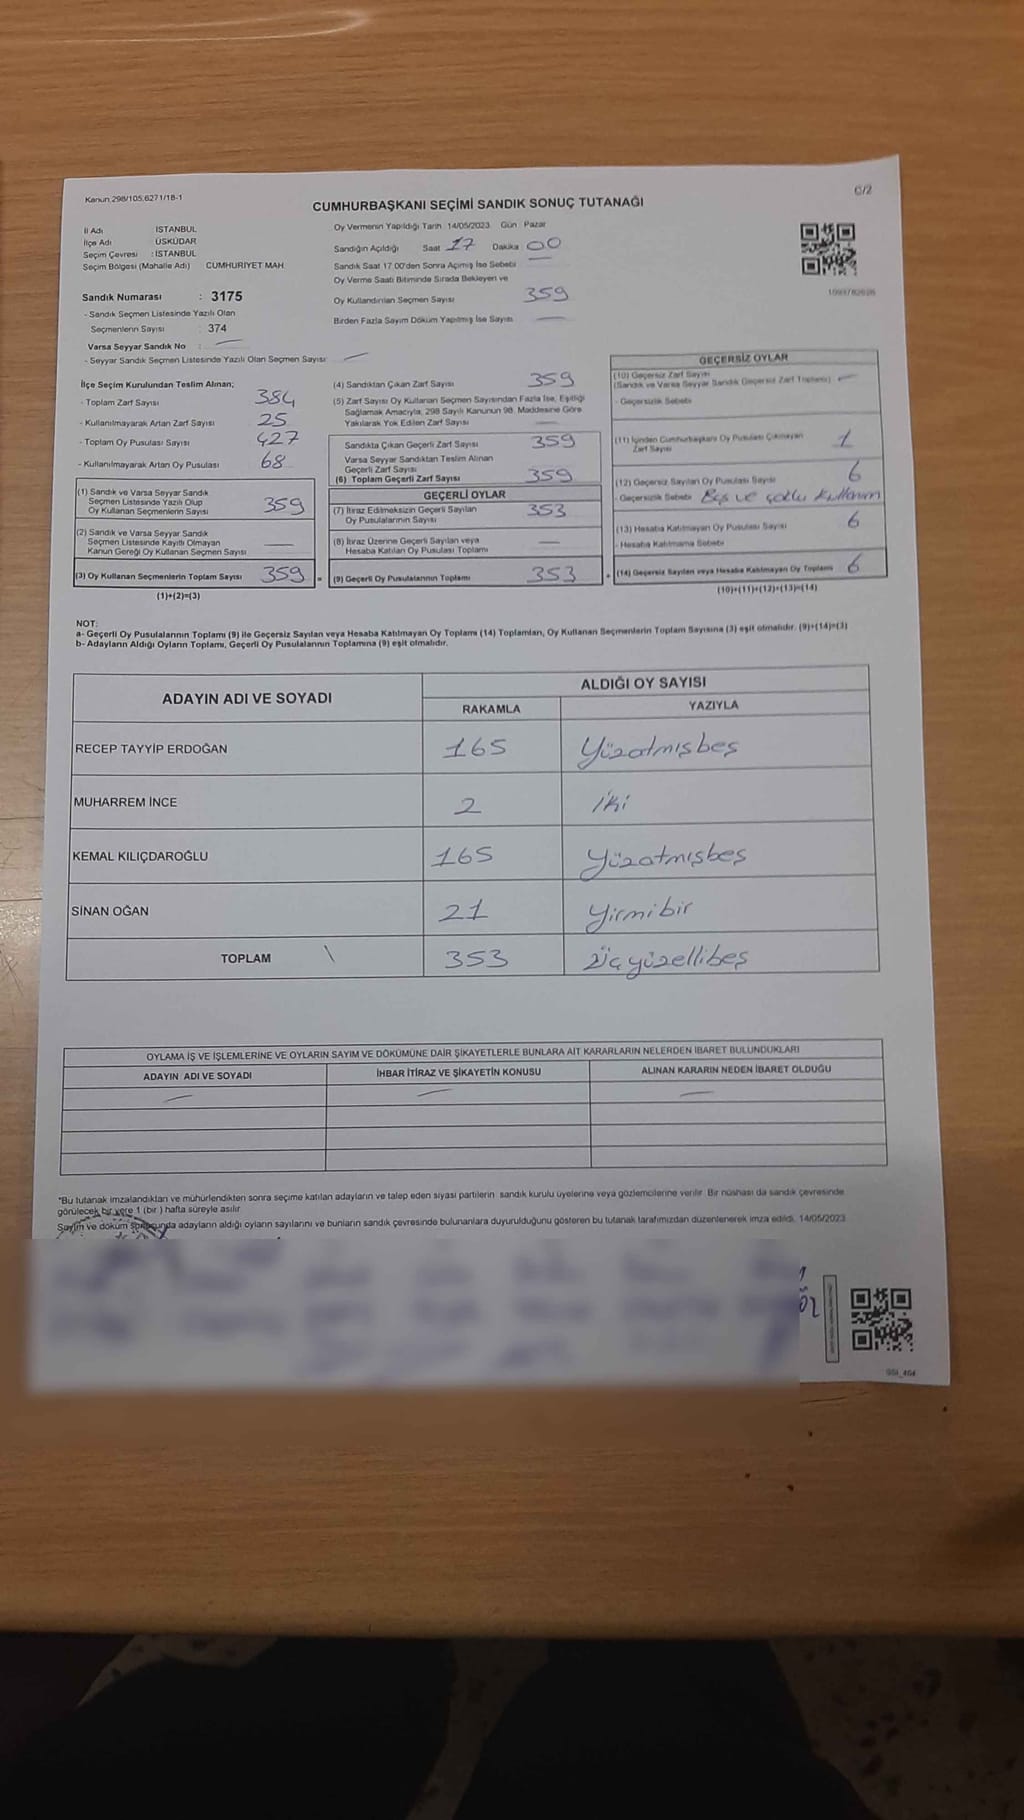 Kanun 298/105,6271/18-1
C/2
CUMHURBAŞKANI SEÇİMİ SANDIK SONUÇ TUTANAĞI
İl Adı İSTANBUL
İlçe Adı ÜSKÜDAR
Seçim Çevresi : İSTANBUL
Seçim Bölgesi (Mahalle Adı) CUMHURİYET MAH.
Sandık Numarası : 3175
- Sandık Seçmen Listesinde Yazılı Olan
Seçmenlerin Sayısı : 374
Varsa Seyyar Sandık No : —
- Seyyar Sandık Seçmen Listesinde Yazılı Olan Seçmen Sayısı —
Oy Vermenin Yapıldığı Tarih 14/05/2023 Gün Pazar
Sandığın Açıldığı Saat 17 Dakika 00
Sandık Saat 17.00'den Sonra Açılmış İse Sebebi —
Oy Verme Saati Bitiminde Sırada Bekleyen ve
Oy Kullandırılan Seçmen Sayısı 359
Birden Fazla Sayım Döküm Yapılmış İse Sayısı —
İlçe Seçim Kurulundan Teslim Alınan;
- Toplam Zarf Sayısı 384
- Kullanılmayarak Artan Zarf Sayısı 25
- Toplam Oy Pusulası Sayısı 427
- Kullanılmayarak Artan Oy Pusulası 68
(1) Sandık ve Varsa Seyyar Sandık
Seçmen Listesinde Yazılı Olup
Oy Kullanan Seçmenlerin Sayısı 359
(2) Sandık ve Varsa Seyyar Sandık
Seçmen Listesinde Kayıtlı Olmayan
Kanun Gereği Oy Kullanan Seçmen Sayısı —
(3) Oy Kullanan Seçmenlerin Toplam Sayısı 359 =
(1)+(2)=(3)
(4) Sandıktan Çıkan Zarf Sayısı 359
(5) Zarf Sayısı Oy Kullanan Seçmen Sayısından Fazla İse, Eşitliği
Sağlamak Amacıyla, 298 Sayılı Kanunun 98. Maddesine Göre
Yakılarak Yok Edilen Zarf Sayısı —
Sandıkta Çıkan Geçerli Zarf Sayısı 359
Varsa Seyyar Sandıktan Teslim Alınan
Geçerli Zarf Sayısı
(6) Toplam Geçerli Zarf Sayısı 359
GEÇERLİ OYLAR
(7) İtiraz Edilmeksizin Geçerli Sayılan
Oy Pusulalarının Sayısı 353
(8) İtiraz Üzerine Geçerli Sayılan veya
Hesaba Katılan Oy Pusulası Toplamı —
(9) Geçerli Oy Pusulalarının Toplamı 353 +
GEÇERSİZ OYLAR
(10) Geçersiz Zarf Sayısı
(Sandık ve Varsa Seyyar Sandık Geçersiz Zarf Toplamı) —
- Geçersizlik Sebebi
(11) İçinden Cumhurbaşkanı Oy Pusulası Çıkmayan
Zarf Sayısı 1
(12) Geçersiz Sayılan Oy Pusulası Sayısı 6
- Geçersizlik Sebebi Boş ve çoklu kullanım
(13) Hesaba Katılmayan Oy Pusulası Sayısı 6
- Hesaba Katılmama Sebebi
(14) Geçersiz Sayılan veya Hesaba Katılmayan Oy Toplamı 6
(10)+(11)+(12)+(13)=(14)
NOT:
a- Geçerli Oy Pusulalarının Toplamı (9) ile Geçersiz Sayılan veya Hesaba Katılmayan Oy Toplamı (14) Toplamları, Oy Kullanan Seçmenlerin Toplam Sayısına (3) eşit olmalıdır. (9)+(14)=(3)
b- Adayların Aldığı Oyların Toplamı, Geçerli Oy Pusulalarının Toplamına (9) eşit olmalıdır.
ADAYIN ADI VE SOYADI
ALDIĞI OY SAYISI
RAKAMLA YAZIYLA
RECEP TAYYİP ERDOĞAN 165 Yüzatmışbeş
MUHARREM İNCE 2 iki
KEMAL KILIÇDAROĞLU 165 Yüzatmışbeş
SİNAN OĞAN 21 Yirmibir
TOPLAM 353 üçyüzellibeş
OYLAMA İŞ VE İŞLEMLERİNE VE OYLARIN SAYIM VE DÖKÜMÜNE DAİR ŞİKAYETLERLE BUNLARA AİT KARARLARIN NELERDEN İBARET BULUNDUKLARI
ADAYIN ADI VE SOYADI İHBAR İTİRAZ VE ŞİKAYETİN KONUSU ALINAN KARARIN NEDEN İBARET OLDUĞU
— — —
*Bu tutanak imzalandıktan ve mühürlendikten sonra seçime katılan adayların ve talep eden siyasi partilerin sandık kurulu üyelerine veya gözlemcilerine verilir. Bir nüshası da sandık çevresinde
görülecek bir yere 1 (bir ) hafta süreyle asılır.
Sayım ve döküm sonucunda adayların aldığı oyların sayılarını ve bunların sandık çevresinde bulunanlara duyurulduğunu gösteren bu tutanak tarafımızdan düzenlenerek imza edildi. 14/05/2023